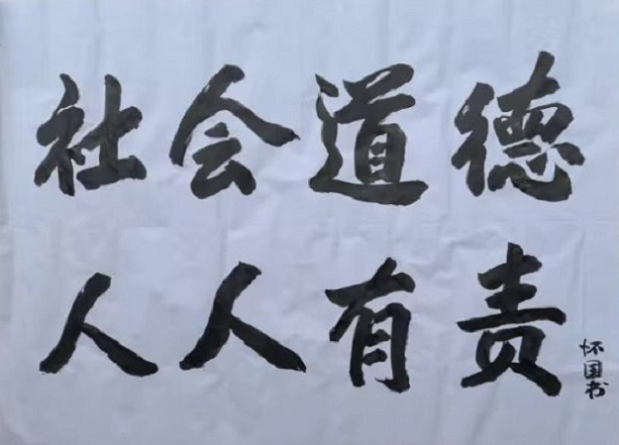 社会道德
人人有责
怀国书